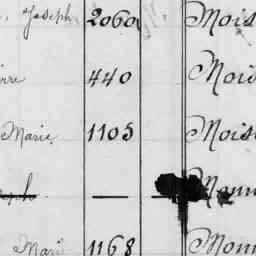 Joseph 2060 Mois
rre 440 Mois
Marie 1105 Mois
eph — Monn
Mari 1168 Monn